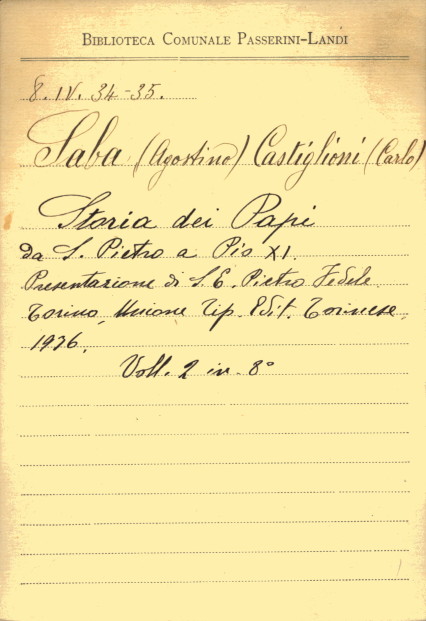 BIBLIOTECA COMUNALE PASSERINI-LANDI
8. IV. 34-35.
Saba (Agostino) Castiglioni (Carlo)
Storia dei Papi
da S. Pietro a Pio XI.
Presentazione di S. E. Pietro Fedele.
Torino, Unione Tip. Edit. Torinese,
1936.
Voll. 2 in 8°